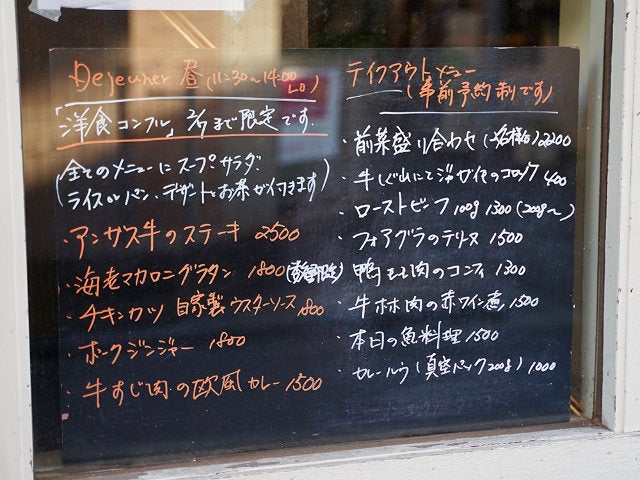 Dejeuner 昼 (11:30〜14:00 L.O)
「洋食コンフル」 2/7まで限定です.
(全てのメニューにスープ.サラダ.
ライスorパン、デザートとお茶が付きます)
・アンガス牛のステーキ 2500
・海老マカロニグラタン 1800
・チキンカツ 自家製ウスターソース 1800
・ポークジンジャー 1800
・牛すじ肉の欧風カレー 1500
テイクアウトメニュー
(事前予約制です)
・前菜盛り合わせ 2200
・牛しぐれ じゃがイモのコロッケ 400
・ローストビーフ 100g 1300 (200g〜)
・フォアグラのテリーヌ 1500
・鴨もも肉のコンフィ 1300
・牛ホホ肉の赤ワイン煮 1500
・本日の魚料理 1500
・カレールウ (真空パック200g) 1000